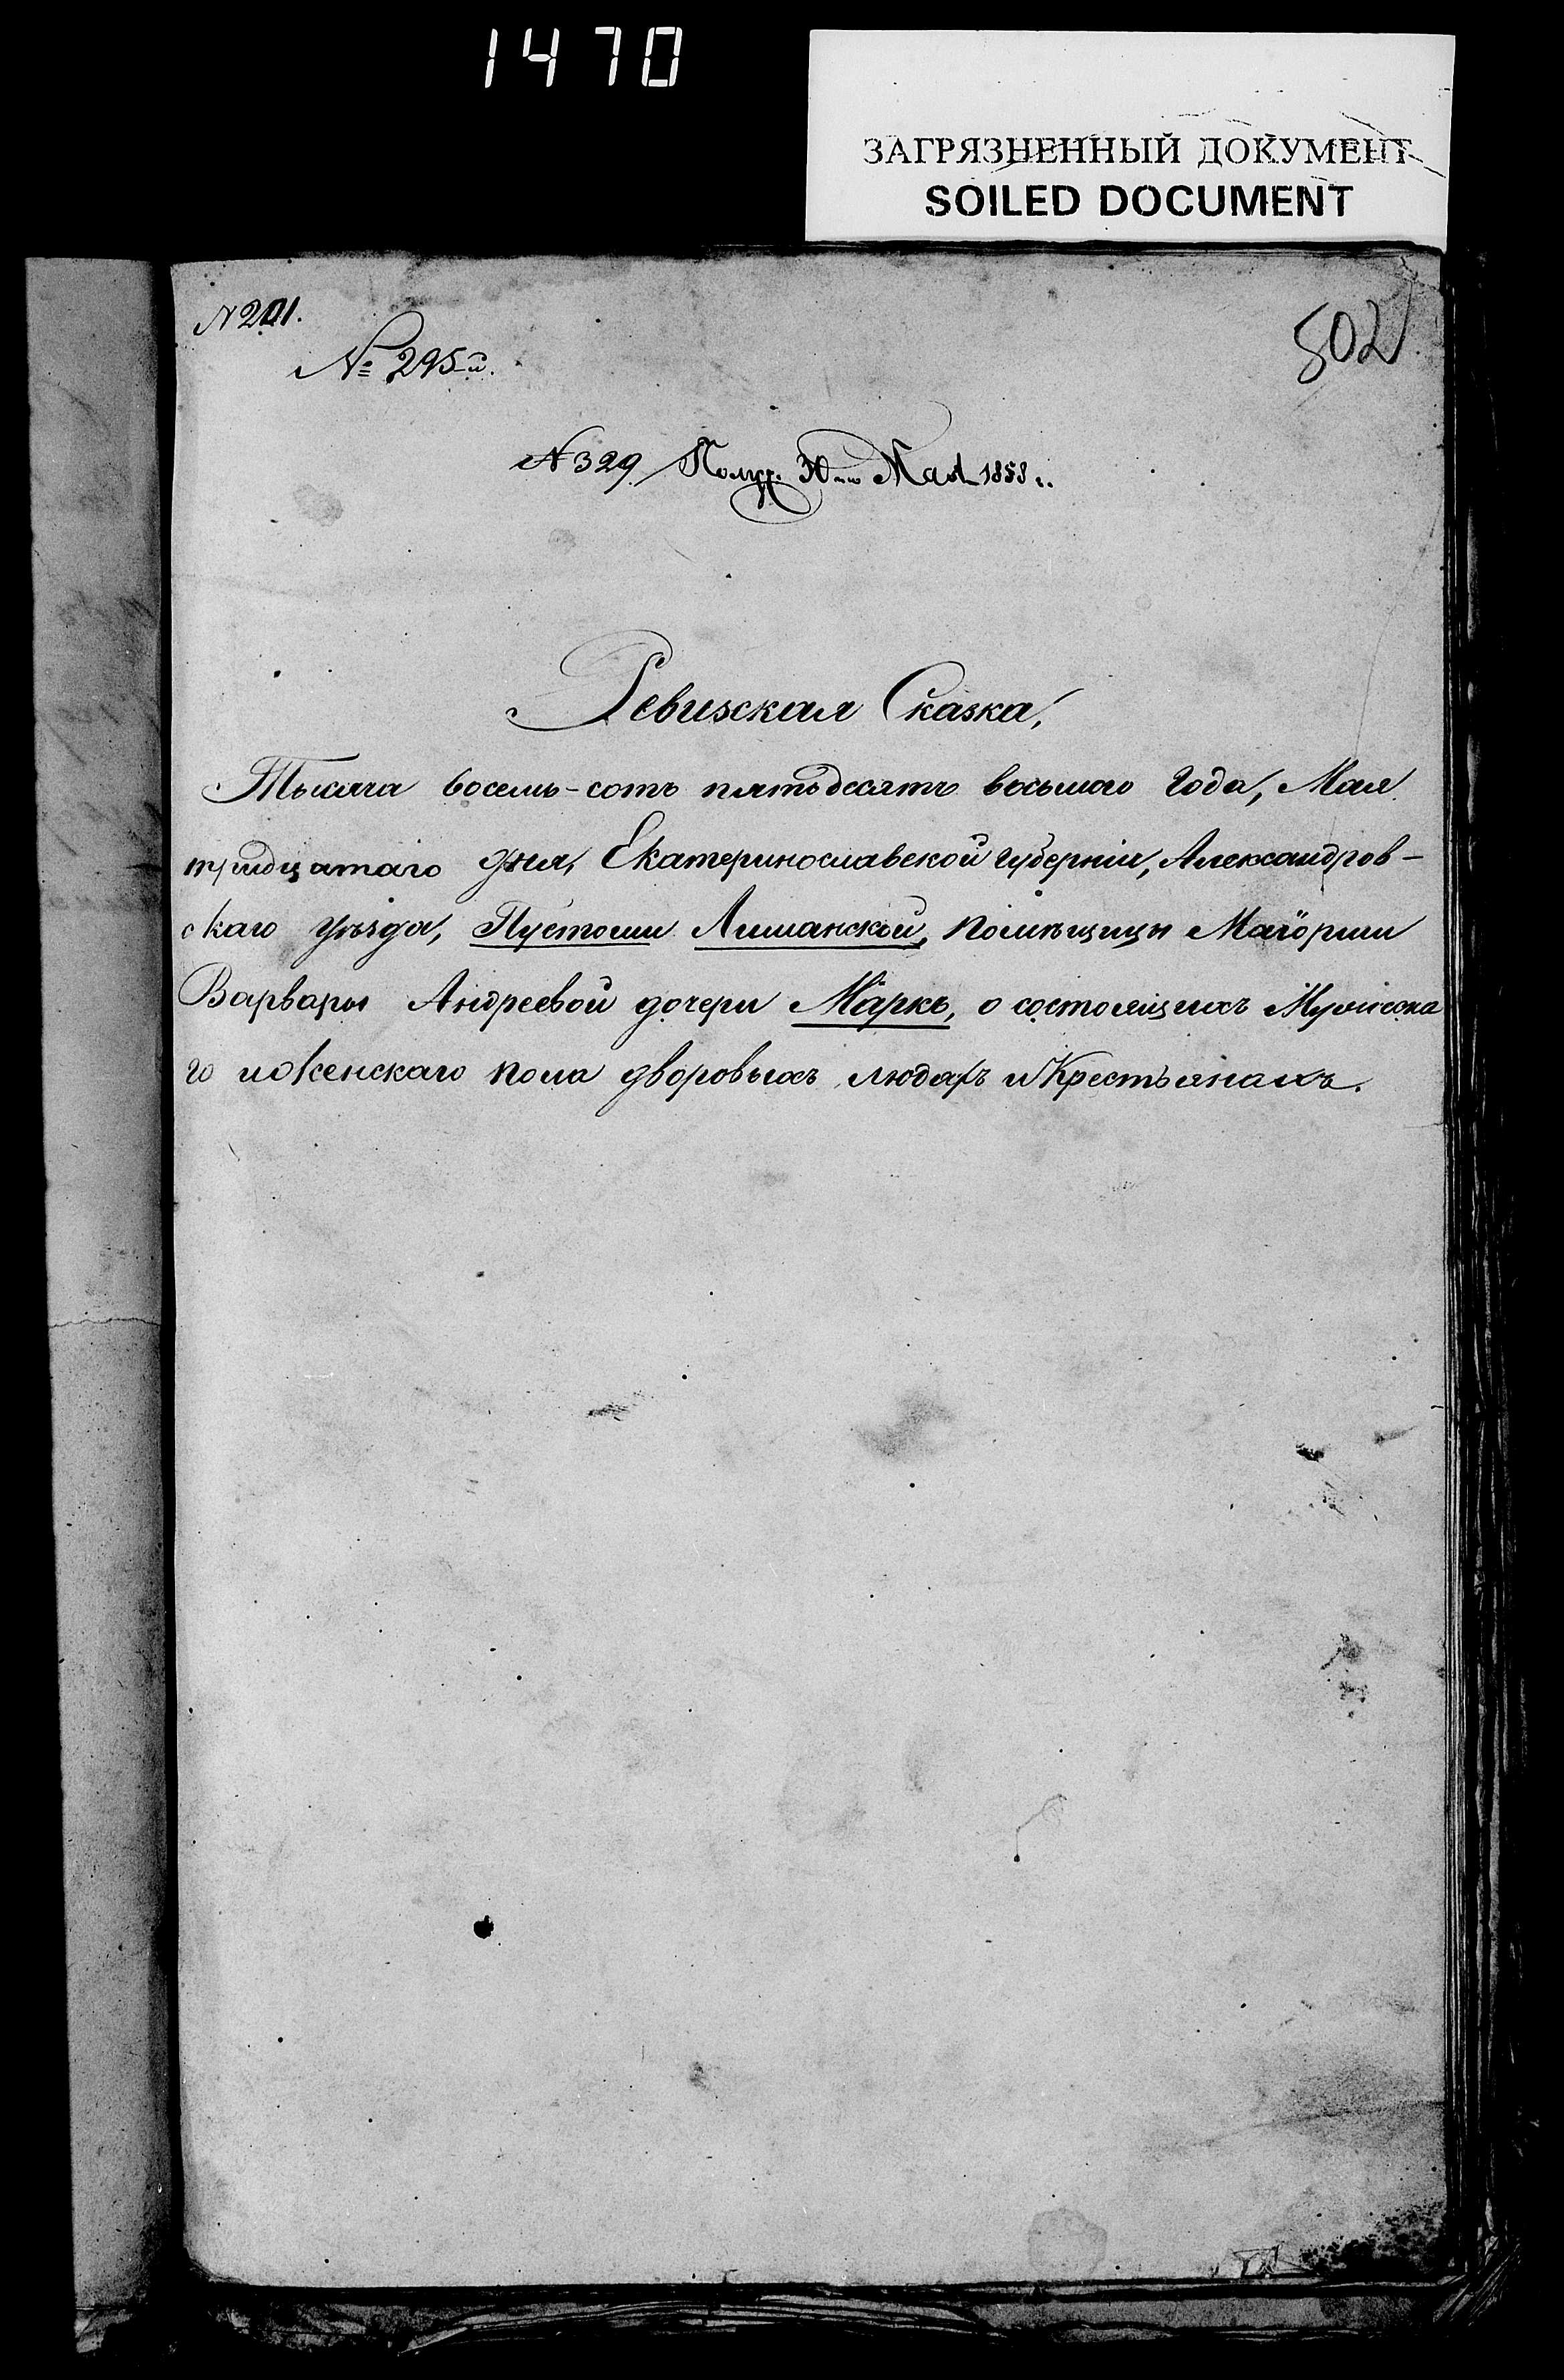 1470
ЗАГРЯЗНЕННЫЙ ДОКУМЕНТ
SOILED DOCUMENT
N 201.
802
№ 295-й.
N 329 Получ. 30-го Мая 1858 г.
Ревизская Сказка,
Тысяча восемь-сотъ пятьдесятъ восьмаго года, Мая
тридцатаго дня, Екатеринославской губерніи, Александров-
скаго уѣзда, Пустоши Лиманской, помѣщицы Маіорши
Варвары Андреевой дочери Маркъ, о состоящихъ мужеска
го и женскаго пола дворовыхъ людяхъ и Крестьянахъ.